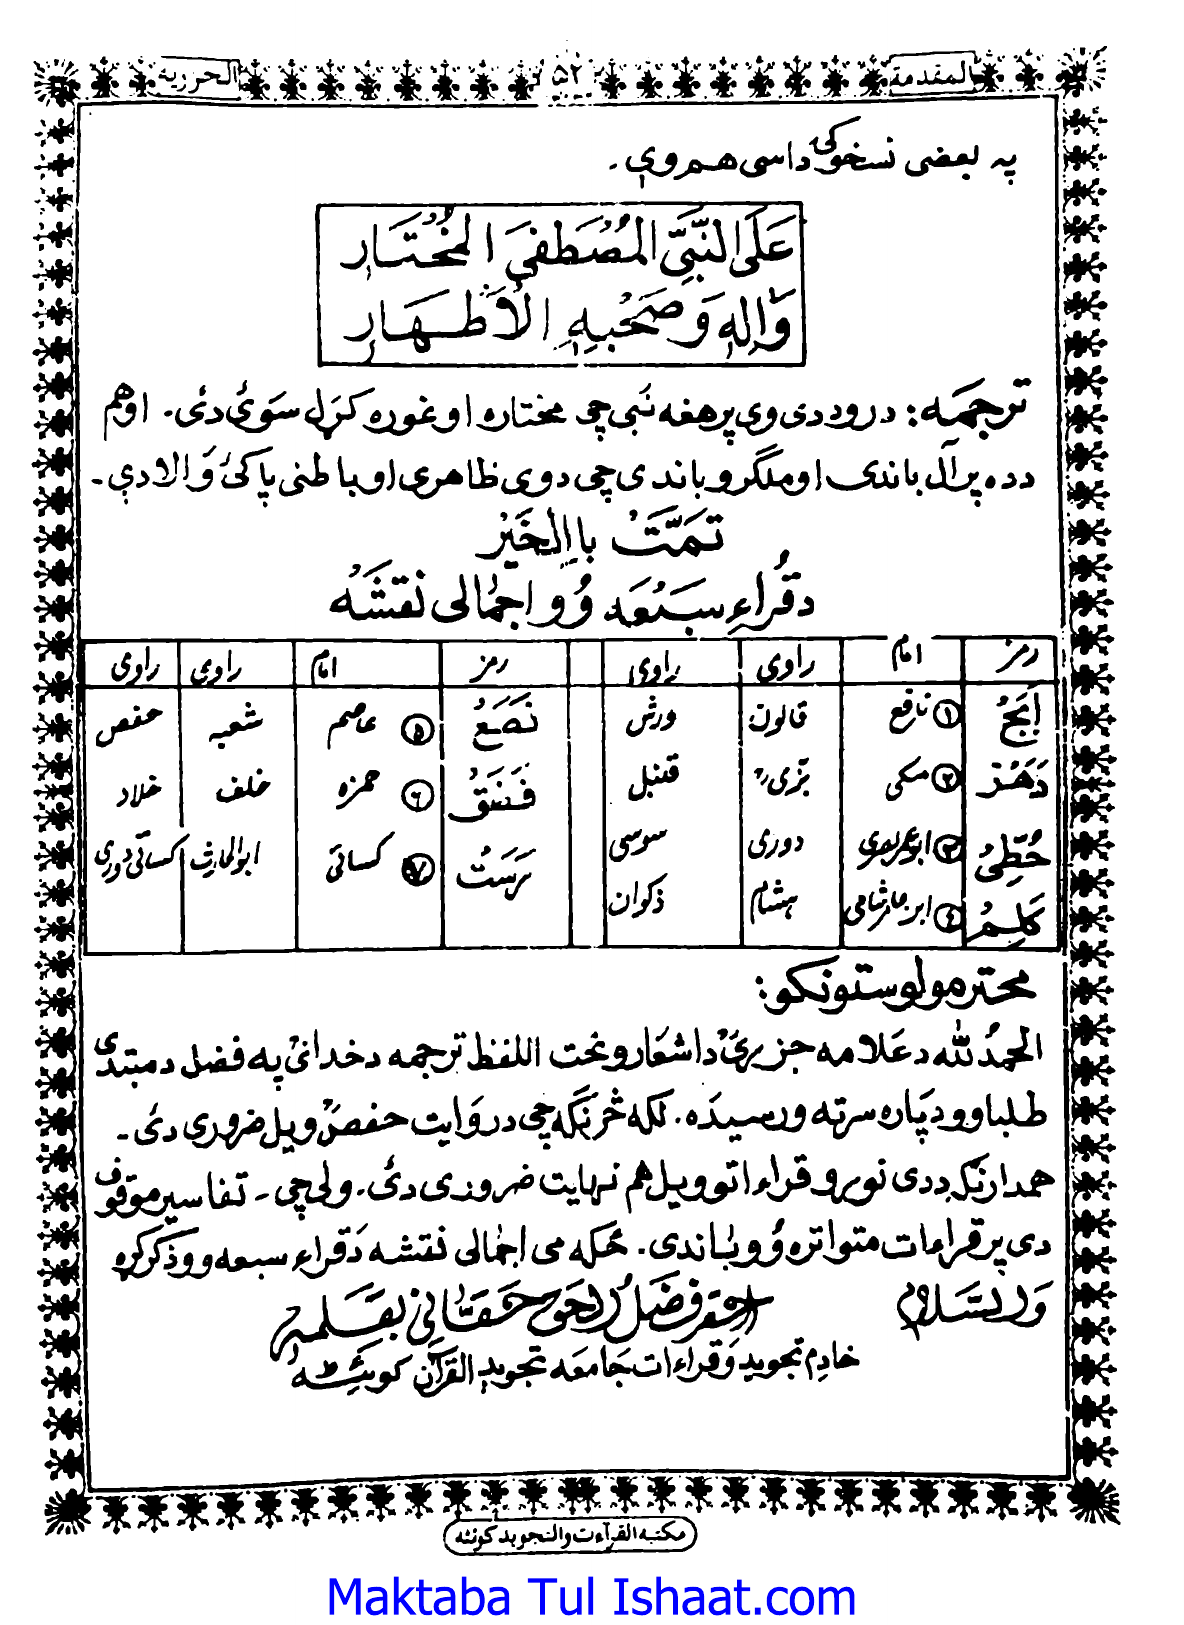 المقدمة ۵۲ الجزرية
په بعضی نسخوکی داسی هم وي۔
عَلَى النَّبِيِّ الْمُصْطَفَى الْمُخْتَارِ
وَاٰلِهٖ وَصَحْبِهِ الْاَطْهَارِ
ترجمه: درود دی وی پر هغه نبی چی مختاره او غوره کړل سوئ دئ۔ او هم
د ده پر آل باندی او ملګرو باندی چی دوی ظاهري او باطنی پاکئ والا دي۔
تمّت باالخير
د قُراءِ سبعه وُو اجمالی نقشه
رمز امام راوی راوي رمز امام راوي راوي
اَبَجْ ① نافع قالون ورش نَصَعْ ⑤ عاصم شعبه حفص
دَهَزْ ② مکی بزی قنبل فَضَقْ ⑥ حمزه خلف خلاد
حُطِّىْ ③ ابوعمر بصری دوری سوسی رَسَتْ ⑦ کسائی ابوالحارث کسائی دوری
کَلِمْ ④ ابن عامر شامی هشام ذکوان
محترمو لوستونکو:
الحمدُ لله د علامه جزریؒ د اشعارو تحت اللفظ ترجمه د خدائ په فضل د مبتدی
طلباوو دپاره سرته ورسیده. لکه څرنګه چی د روایت حفصؒ ویل ضروری دی۔
همدارنګه ددی نورو قراءاتو ویل هم نهایت ضروری دئ. ولی چی۔ تفاسیر موقوف
دی پر قراءات متواتره وُو باندی. ځکه می اجمالی نقشه د قراءِ سبعه وو ذکر کړه
والسّلام احقر فضلُ الحق حقّانی بقلمه
خادم تجوید وقراءات جامعه تجوید القرآن کوئټه
مکتبه القرآءت والتجوید کوئټه
Maktaba Tul Ishaat.com